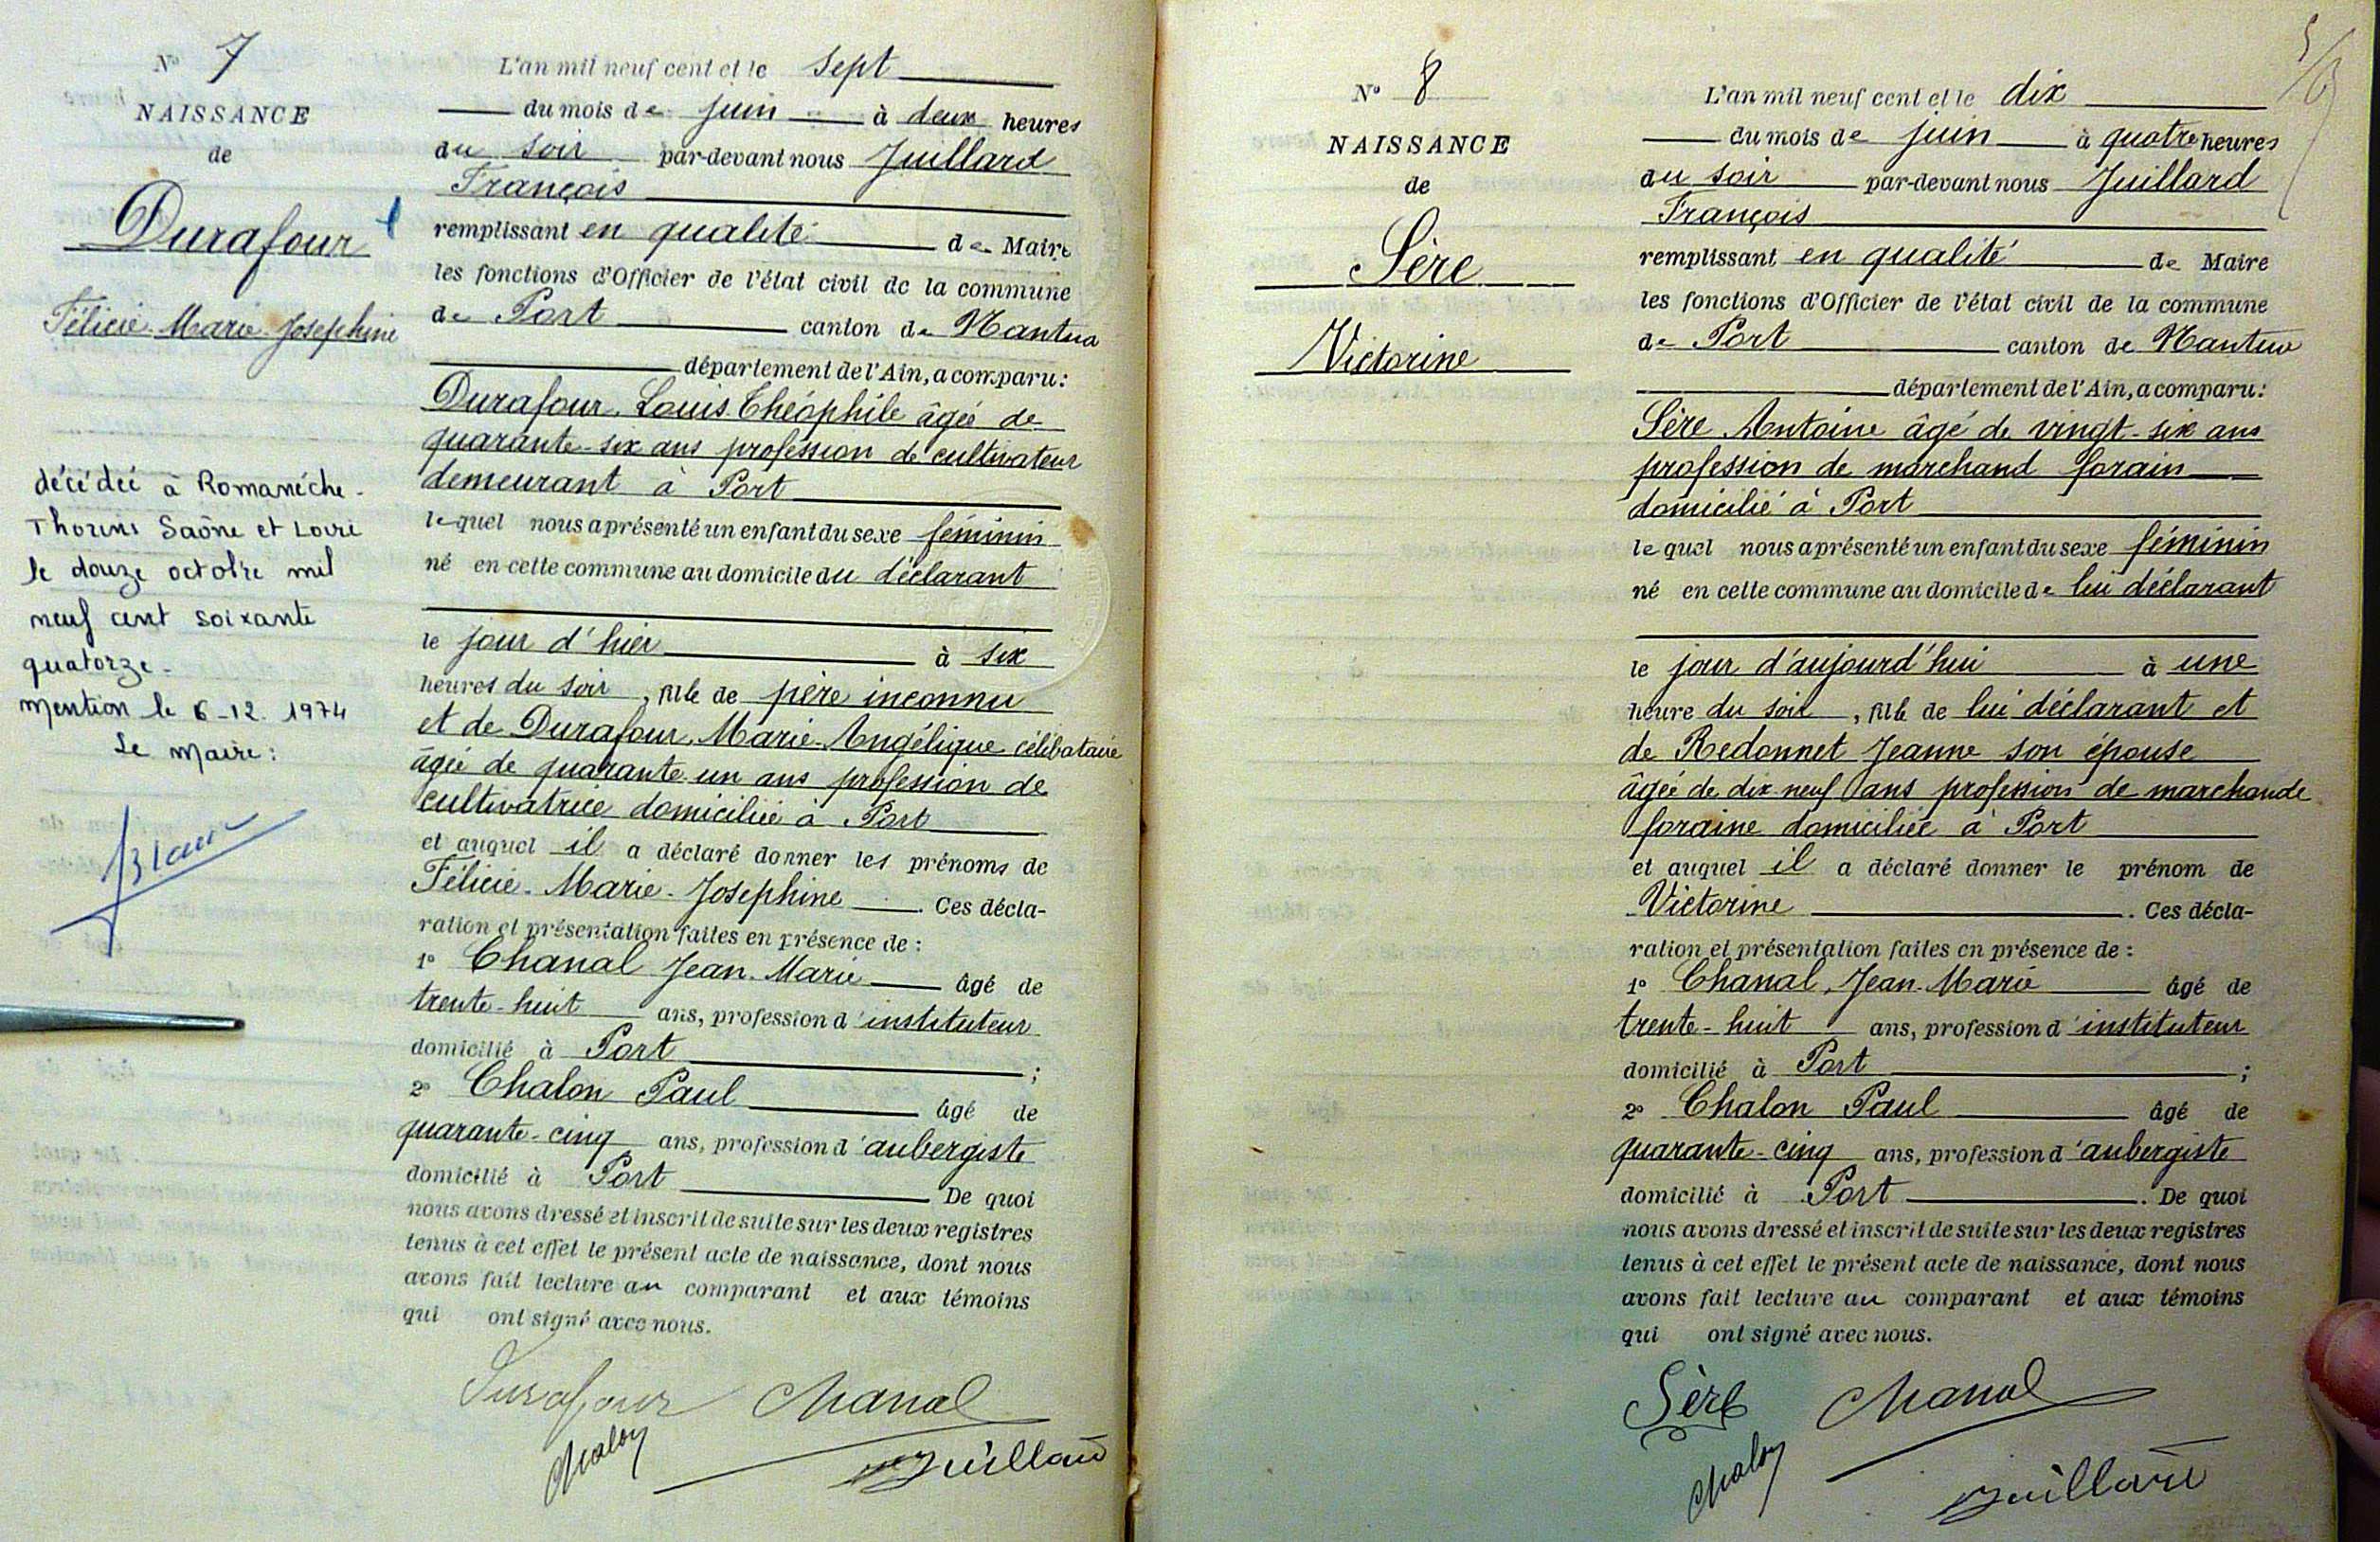 N° 7
NAISSANCE
de
Durafour
Félicie-Marie-Josephine
décédée à Romanèche-
Thorins Saône et Loire
le douze octobre mil
neuf cent soixante
quatorze.
Mention le 6-12. 1974
Le Maire:
L'an mil neuf cent et le sept
du mois de juin à deux heures
du soir par-devant nous Juillard
François
remplissant en qualité de Maire
les fonctions d'Officier de l'état civil de la commune
de Port canton de Nantua
département de l'Ain, a comparu:
Durafour Louis Théophile âgé de
quarante-six ans profession de cultivateur
demeurant à Port
lequel nous a présenté un enfant du sexe féminin
né en cette commune au domicile du déclarant
le jour d'hier à six
heures du soir, fille de père inconnu
et de Durafour Marie-Angélique célibataire
âgée de quarante un ans profession de
cultivatrice domiciliée à Port
et auquel il a déclaré donner les prénoms de
Félicie-Marie-Josephine. Ces décla-
ration et présentation faites en présence de:
1° Chanal Jean-Marie âgé de
trente-huit ans, profession d'instituteur
domicilié à Port;
2° Chalon Paul âgé de
quarante-cinq ans, profession d'aubergiste
domicilié à Port De quoi
nous avons dressé et inscrit de suite sur les deux registres
tenus à cet effet le présent acte de naissance, dont nous
avons fait lecture au comparant et aux témoins
qui ont signé avec nous.
Durafour Chanal
Chalon Juillard
N° 8
NAISSANCE
de
Sère
Victorine
L'an mil neuf cent et le dix
du mois de juin à quatre heures
du soir par-devant nous Juillard
François
remplissant en qualité de Maire
les fonctions d'Officier de l'état civil de la commune
de Port canton de Nantua
département de l'Ain, a comparu:
Sère Antoine âgé de vingt-six ans
profession de marchand forain
domicilié à Port
lequel nous a présenté un enfant du sexe féminin
né en cette commune au domicile de lui déclarant
le jour d'aujourd'hui à une
heure du soir, fille de lui déclarant et
de Redonnet Jeanne son épouse
âgée de dix neuf ans profession de marchande
foraine domiciliée à Port
et auquel il a déclaré donner le prénom de
Victorine. Ces décla-
ration et présentation faites en présence de:
1° Chanal Jean-Marie âgé de
trente-huit ans, profession d'instituteur
domicilié à Port;
2° Chalon Paul âgé de
quarante-cinq ans, profession d'aubergiste
domicilié à Port. De quoi
nous avons dressé et inscrit de suite sur les deux registres
tenus à cet effet le présent acte de naissance, dont nous
avons fait lecture au comparant et aux témoins
qui ont signé avec nous.
Sère Chanal
Chalon Juillard